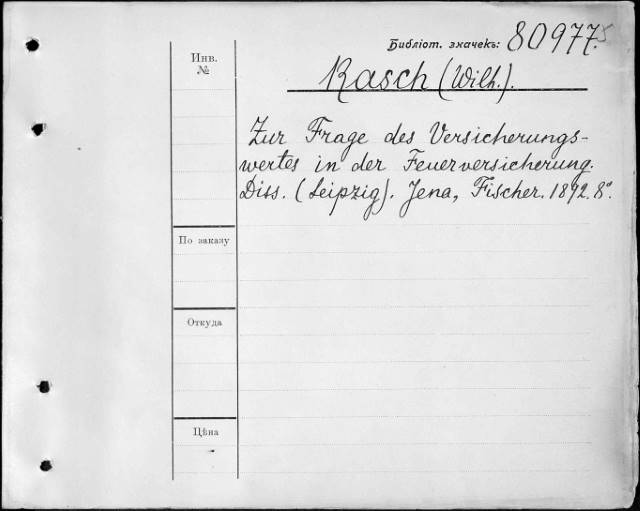 Библіот. значекъ: 80977
Инв.
№
Rasch (Wilh.).
Zur Frage des Versicherungs-
wertes in der Feuerversicherung.
Diss. (Leipzig). Jena, Fischer. 1892. 8°.
По заказу
Откуда
Цѣна